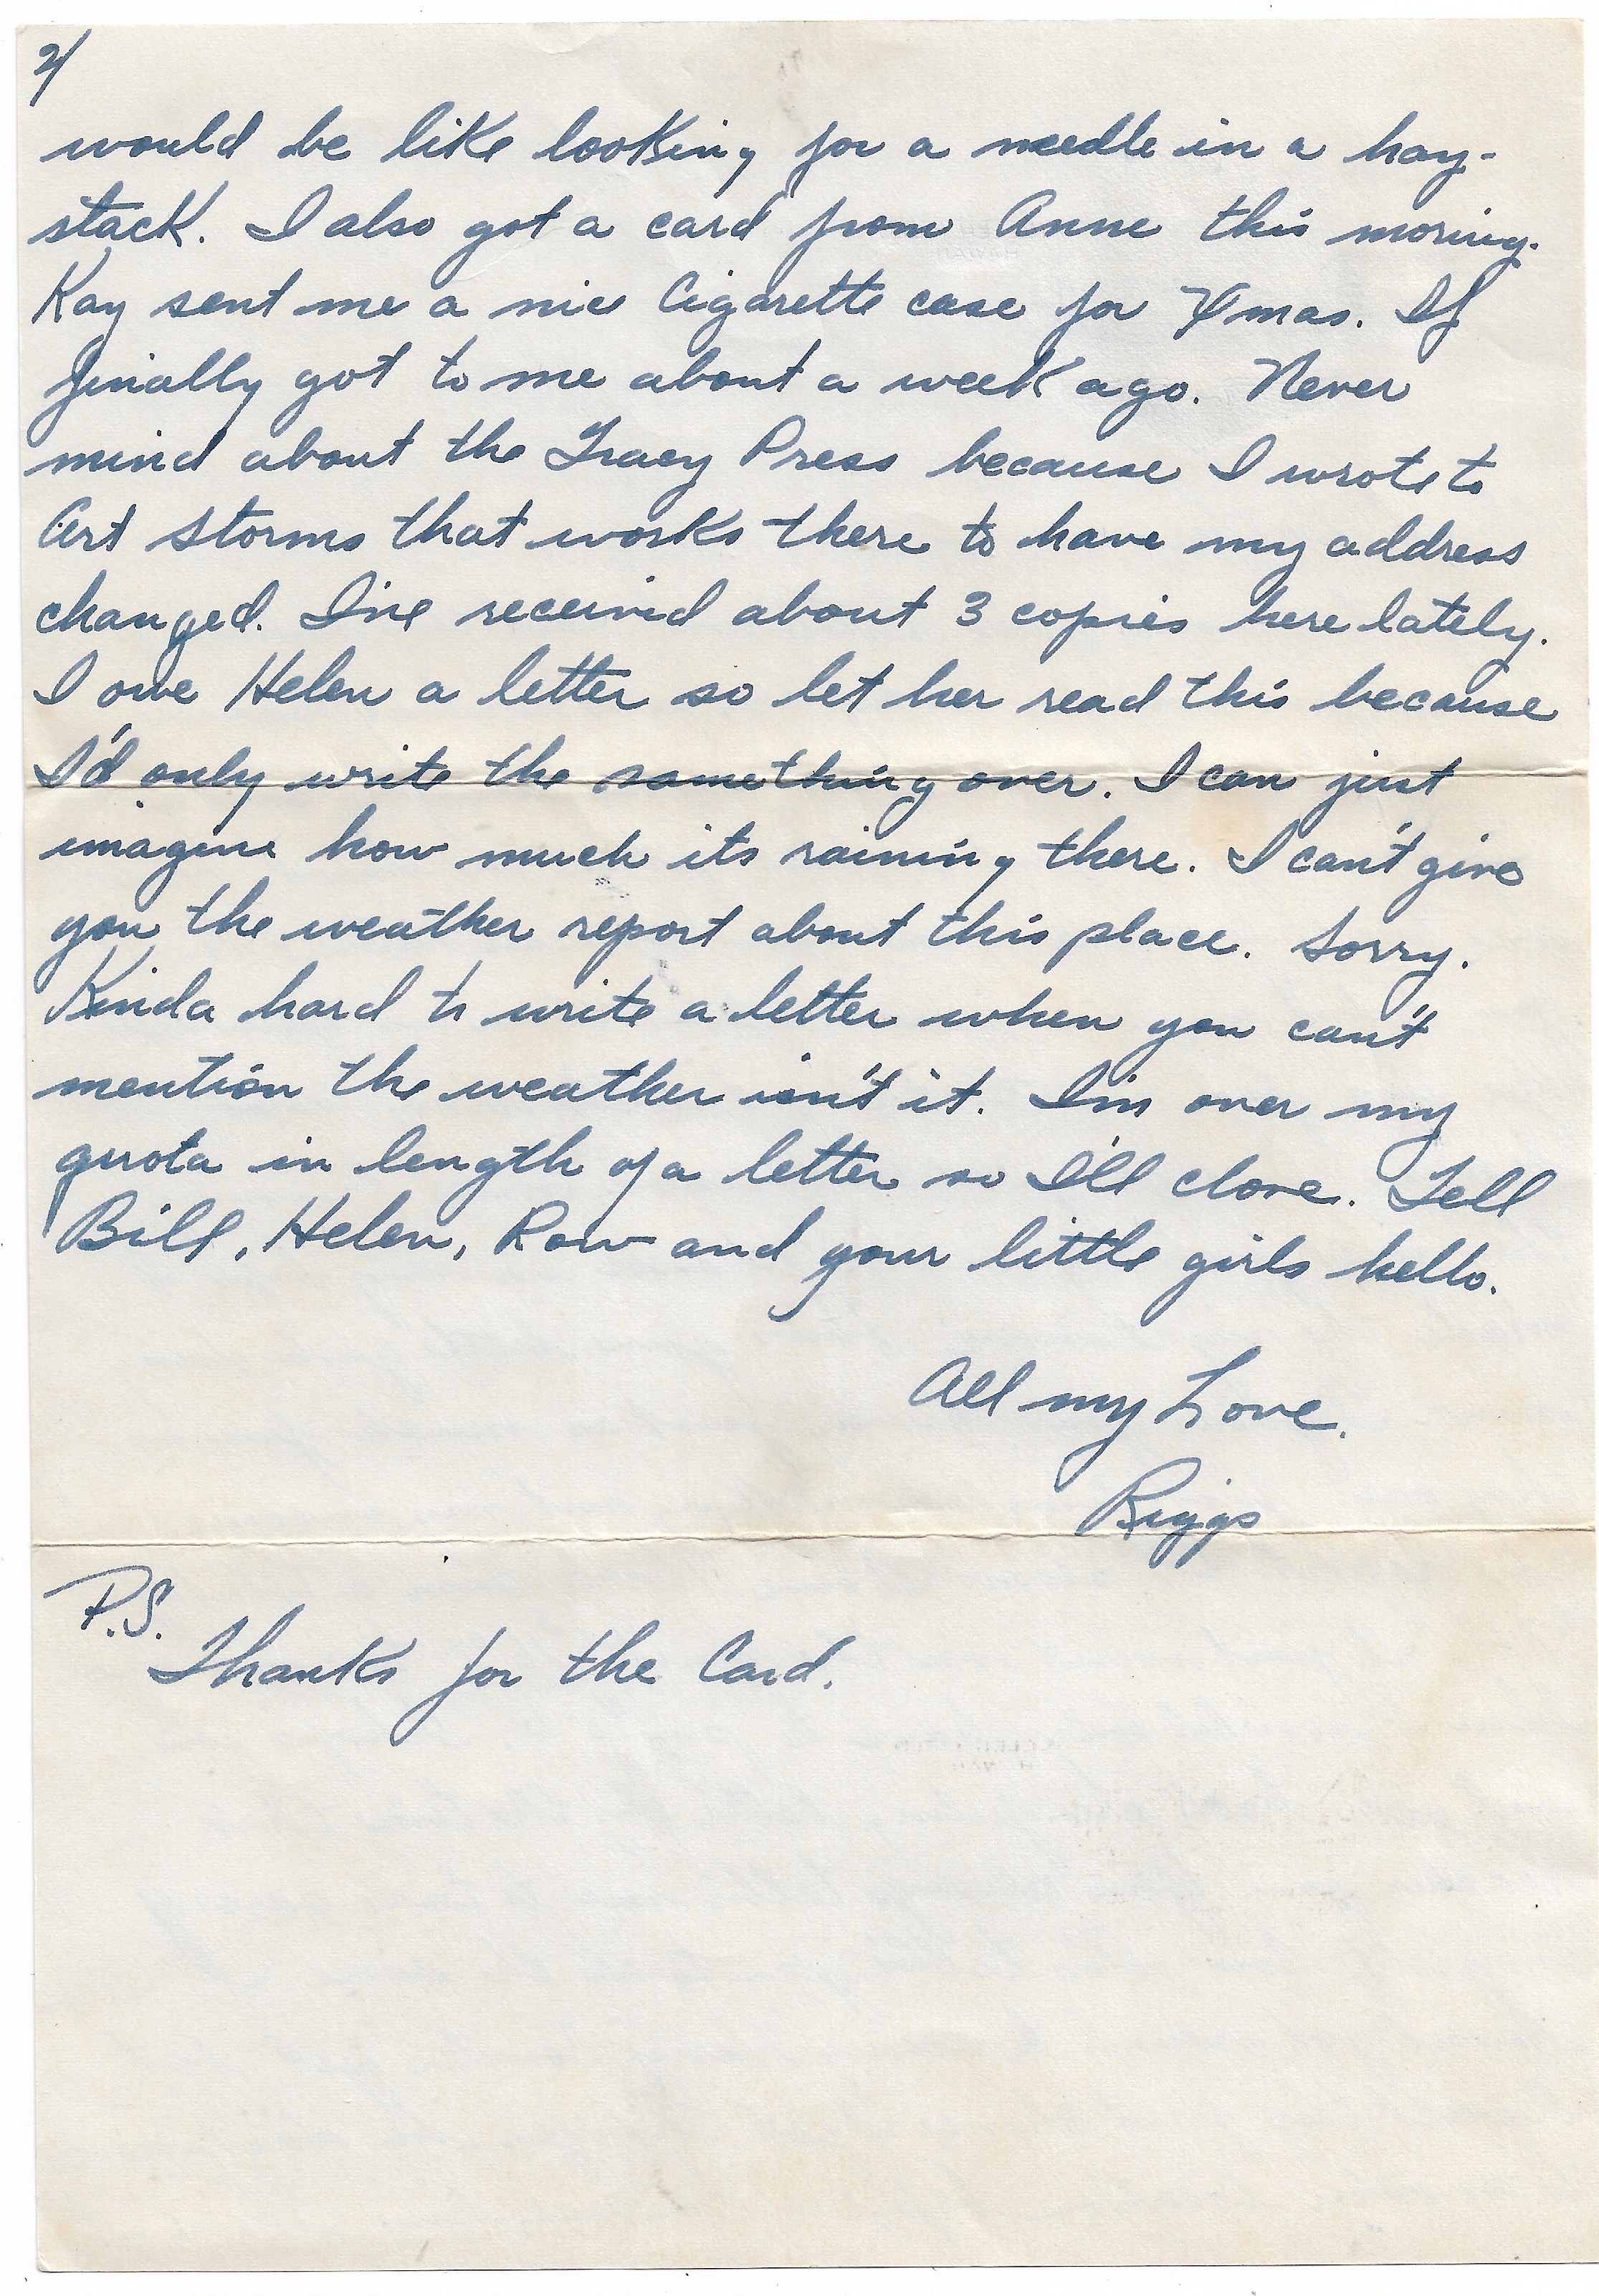 2/
would be like looking for a needle in a hay-
stack. I also got a card from Anne this moring.
Kay sent me a nice Cigarette case for Xmas. If
finally got to me about a week ago. Never
mind about the Tracy Press because I wrote to
Art Storms that works there to have my address
changed. I've received about 3 copies here lately.
I owe Helen a letter so let her read this because
I'd only write the same thing over. I can just
imagine how much its raining there. I can't give
you the weather report about this place. Sorry.
Kinda hard to write a letter when you can't
mention the weather isn't it. I'm over my
quota in length of a letter so I'll close. Tell
Bill, Helen, Row and your little girls hello.
All my Love.
Riggs
P.S.
Thanks for the Card.